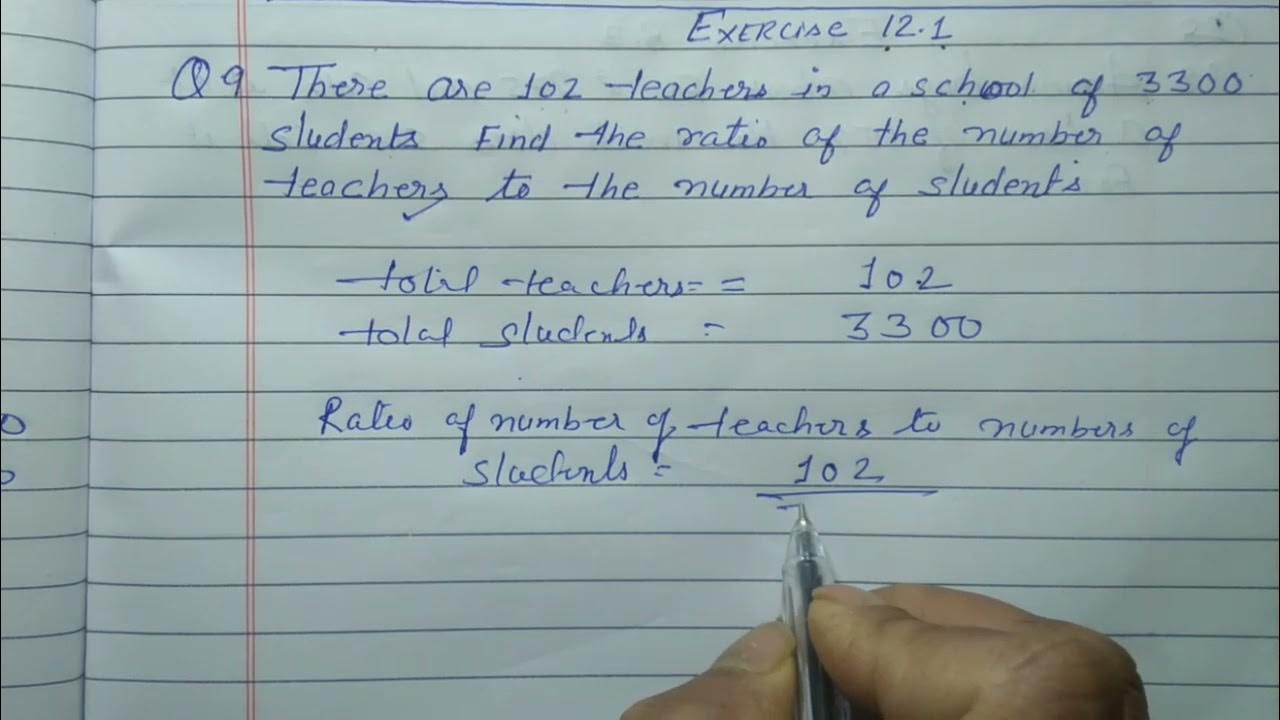 EXERCISE 12.1
Q 9 There are 102 teachers in a school of 3300
students Find the ratio of the number of
teachers to the number of students
total teachers= = 102
total students = 3300
Ratio of number of teachers to numbers of
students = 102